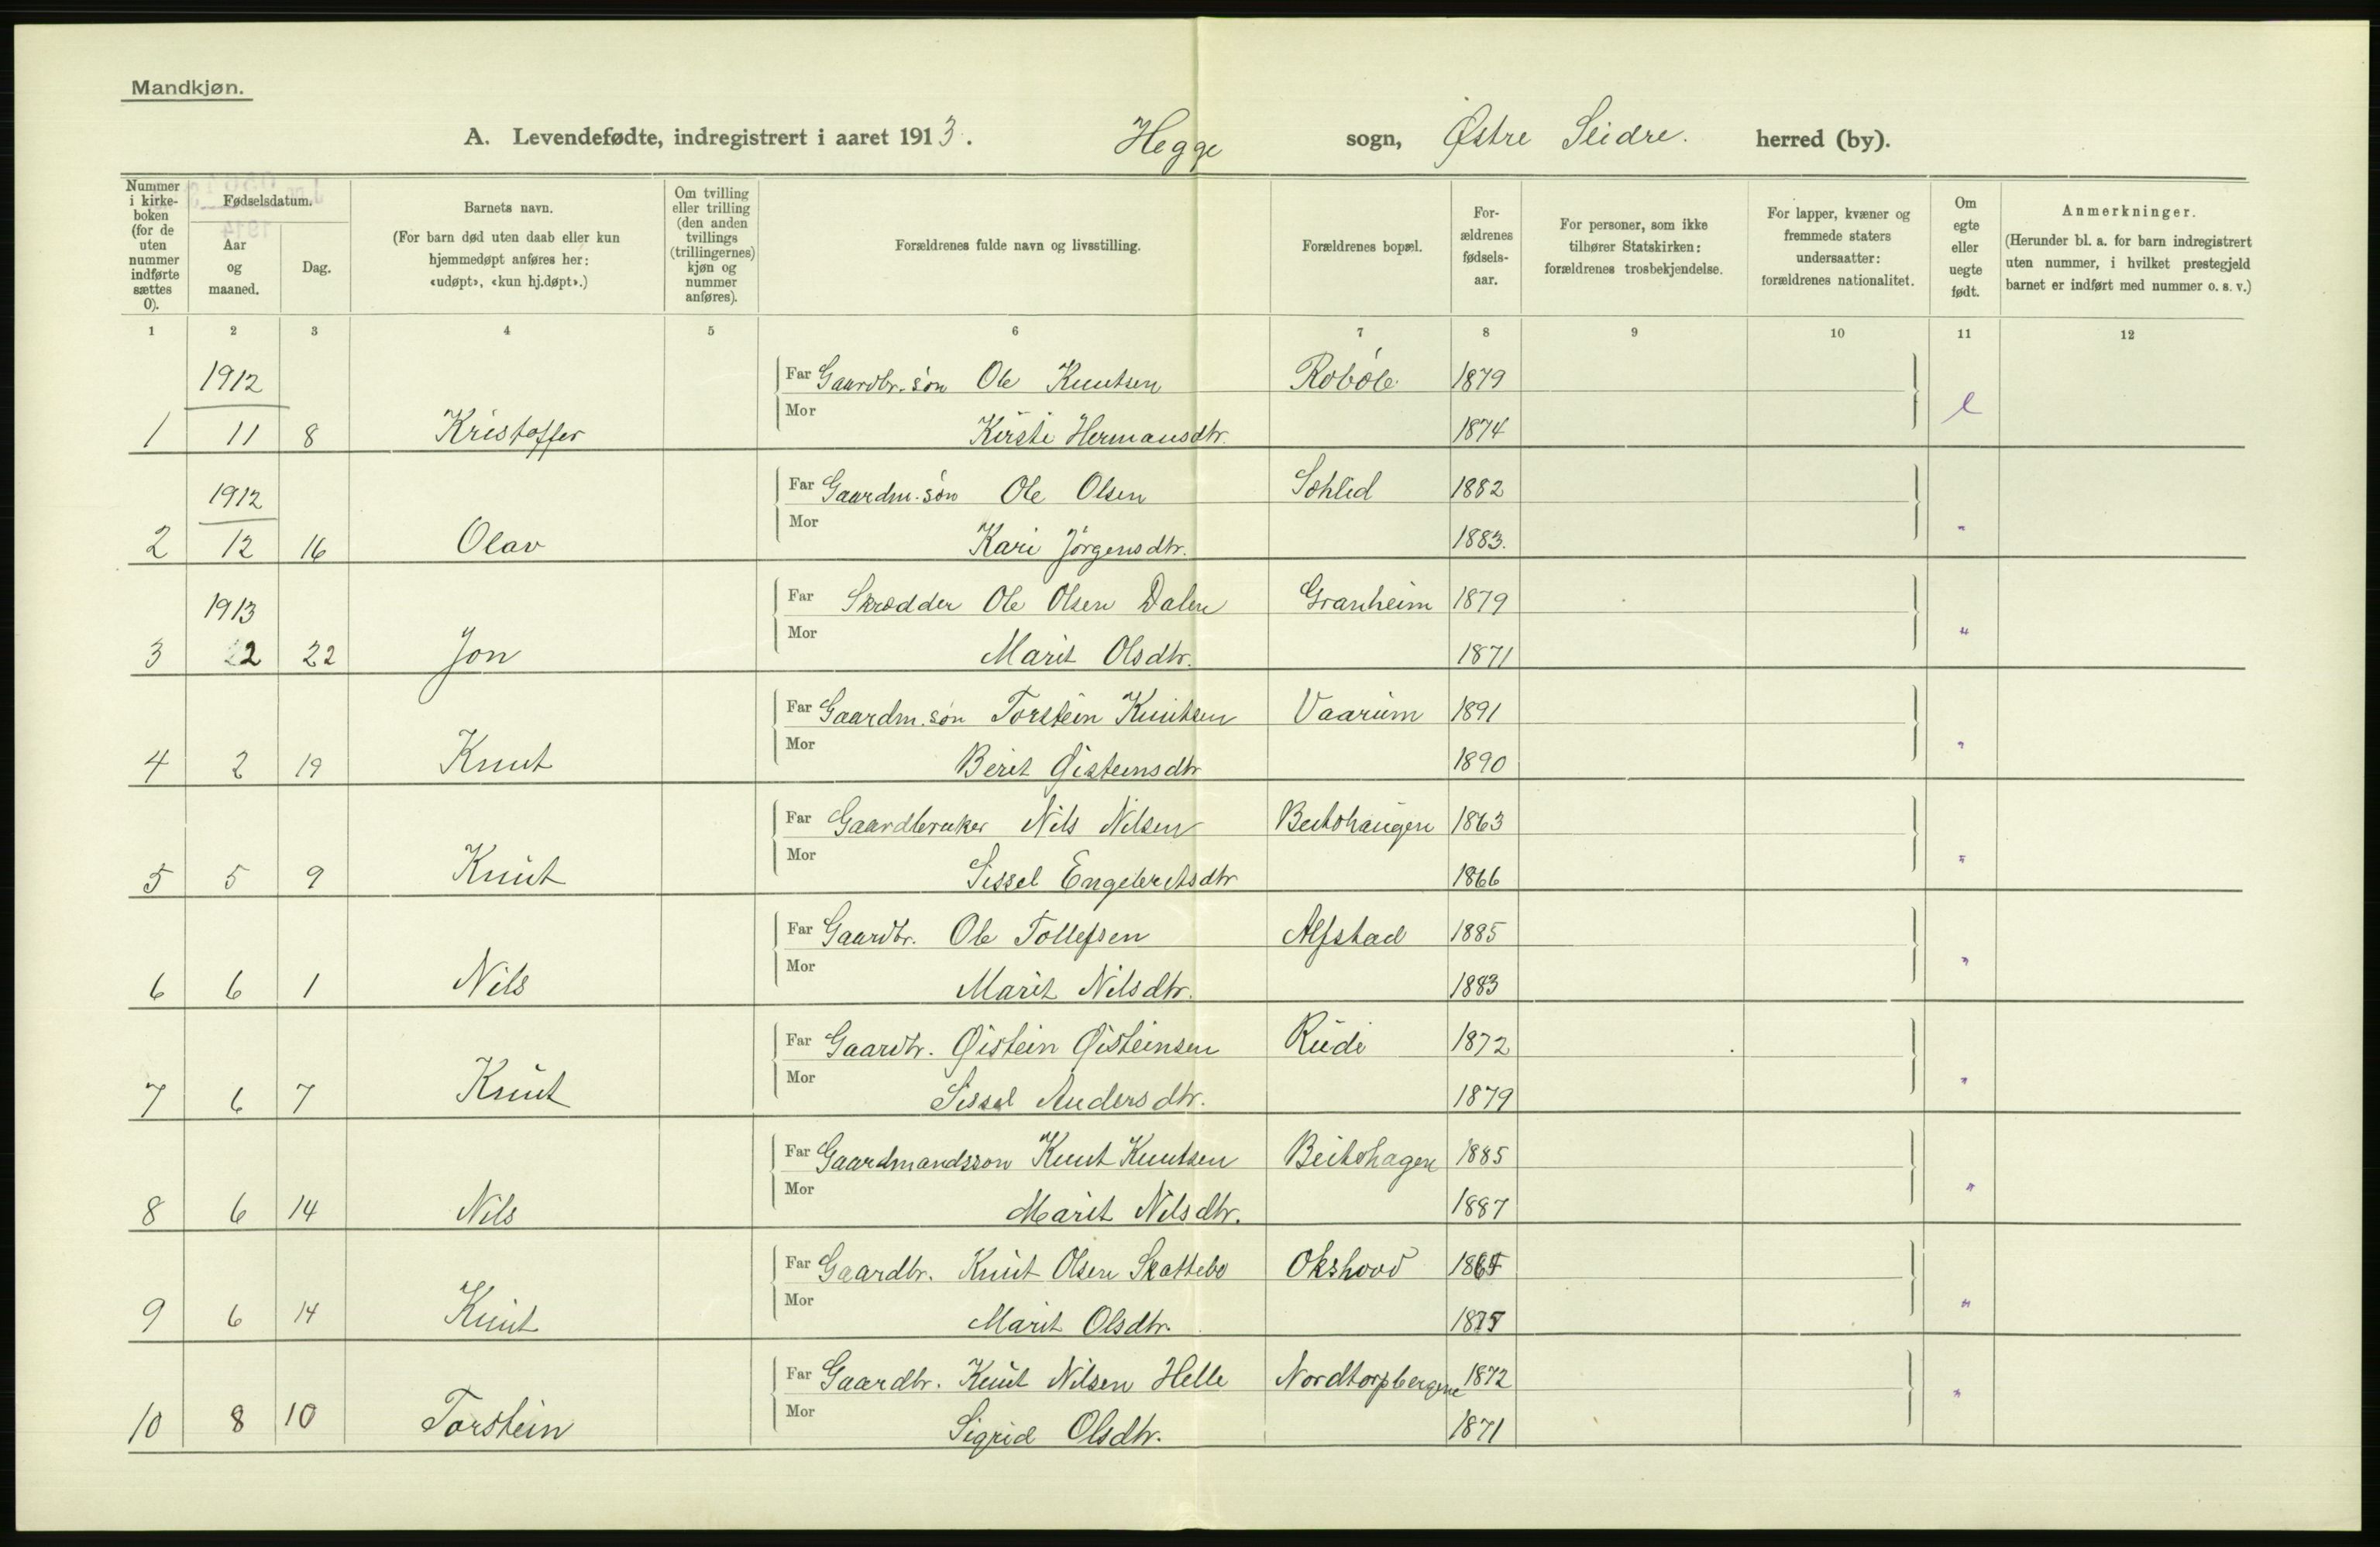 Mandkjøn.
A. Levendefødte, indregistrert i aaret 1913. Hegge sogn, Østre Slidre. herred (by).
Nummer i kirke-boken (for de uten nummer indførte sættes 0).
Fødselsdatum.
Aar og maaned.
Dag.
Barnets navn.
(For barn død uten daab eller kun hjemmedøpt anføres her: «udøpt», «kun hj.døpt».)
Om tvilling eller trilling (den anden tvillings (trillingernes) kjøn og nummer anføres).
Forældrenes fulde navn og livsstilling.
Forældrenes bopæl.
For-ældrenes fødsels-aar.
For personer, som ikke tilhører Statskirken: forældrenes trosbekjendelse.
For lapper, kvæner og fremmede staters undersaatter: forældrenes nationalitet.
Om egte eller uegte født.
Anmerkninger.
(Herunder bl. a. for barn indregistrert uten nummer, i hvilket prestegjeld barnet er indført med nummer o. s. v.)
1 2 3 4 5 6 7 8 9 10 11 12
1912 Far Gaardbr. søn Ole Knutsen Robøle 1879
1 11 8 Kristoffer Mor Kirsti Hermansdtr. 1874 e
1912 Far Gaardm. søn Ole Olsen 1882
2 12 16 Olav Mor Kari Jörgensdtr. 1883. "
1913 Far Skrædder Ole Olsen Dalen Granheim 1879
3 2 22 Jon Mor Marit Olsdtr. 1871 "
Far Gaardm. søn Torstein Knutsen Vaarum 1891
4 2 19 Knut Mor Berit Øisteinsdtr 1890 "
Far Gaardbruker Nils Nilsen Beitohaugen 1863
5 5 9 Knut Mor Sissel Engebretsdtr 1866 "
Far Gaardbr. Ole Tollefsen Alfstad 1885
6 6 1 Nils Mor Marit Nilsdtr. 1883 "
Far Gaardbr. Øistein Øisteinsen Rudi 1872
7 6 7 Knut Mor Sissel Andersdtr. 1879 "
Far Gaardmandsson Knut Knutsen Beitohagen 1885
8 6 14 Nils Mor Marit Nilsdtr. 1887 "
Far Gaardbr. Knut Olsen Skattebo Okshovd
9 6 14 Knut Mor Marit Olsdtr. "
Far Gaardbr. Knut Nilsen Helle Nordtorpbergene 1872
10 8 10 Torstein Mor Sigrid Olsdtr. 1871 "